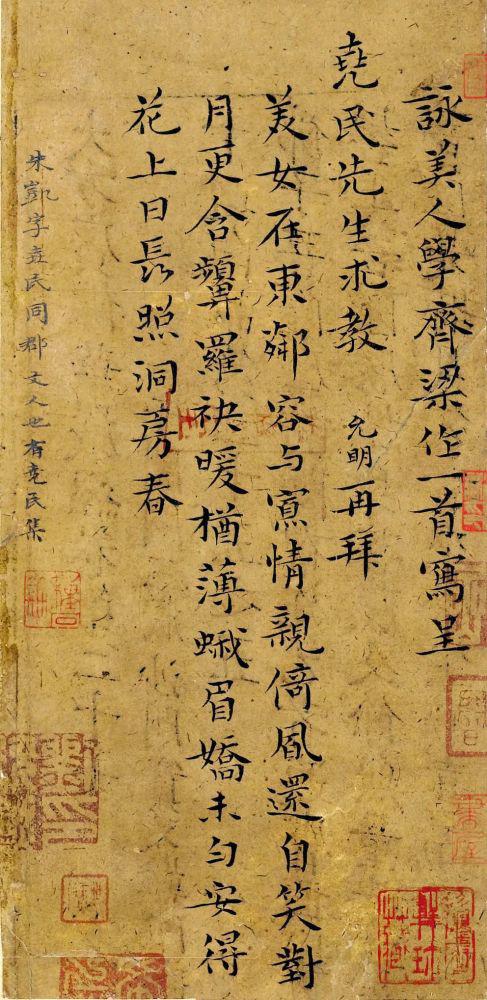 詠美人學齊梁作一首寫呈
堯民先生求教 允明再拜
美女在東鄰容与寫情親倚風還自笑對
月更含顰羅袂暖猶薄蛾眉嬌未勻安得
花上日長照洞房春
朱凱字堯民同郡文人也有堯民集